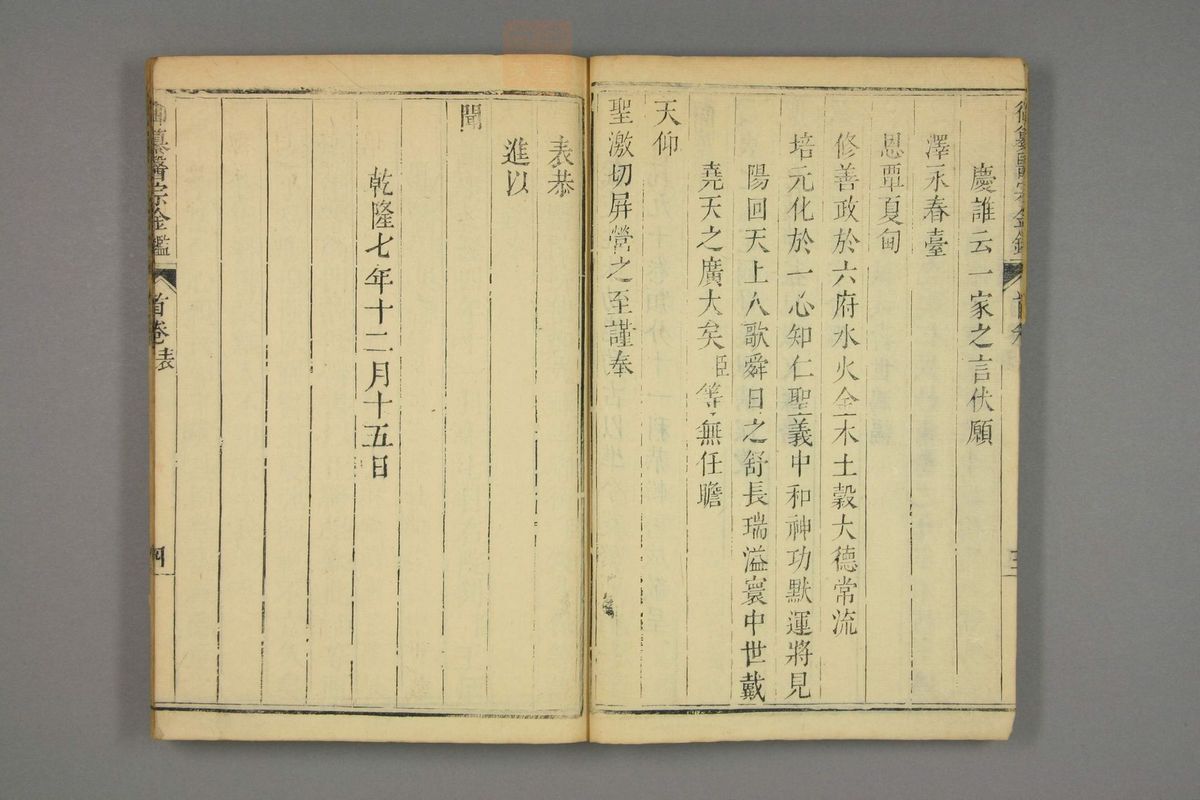 御纂醫宗金鑑
首卷
三
慶誰云一家之言伏願
澤永春臺
恩覃夏甸
修善政於六府水火金木土穀大德常流
培元化於一心知仁聖義中和神功默運將見
陽回天上人歌舜日之舒長瑞溢寰中世戴
堯天之廣大矣臣等無任瞻
天仰
聖激切屏營之至謹奉
表恭
進以
聞
乾隆七年十二月十五日
御纂醫宗金鑑
首卷表
四